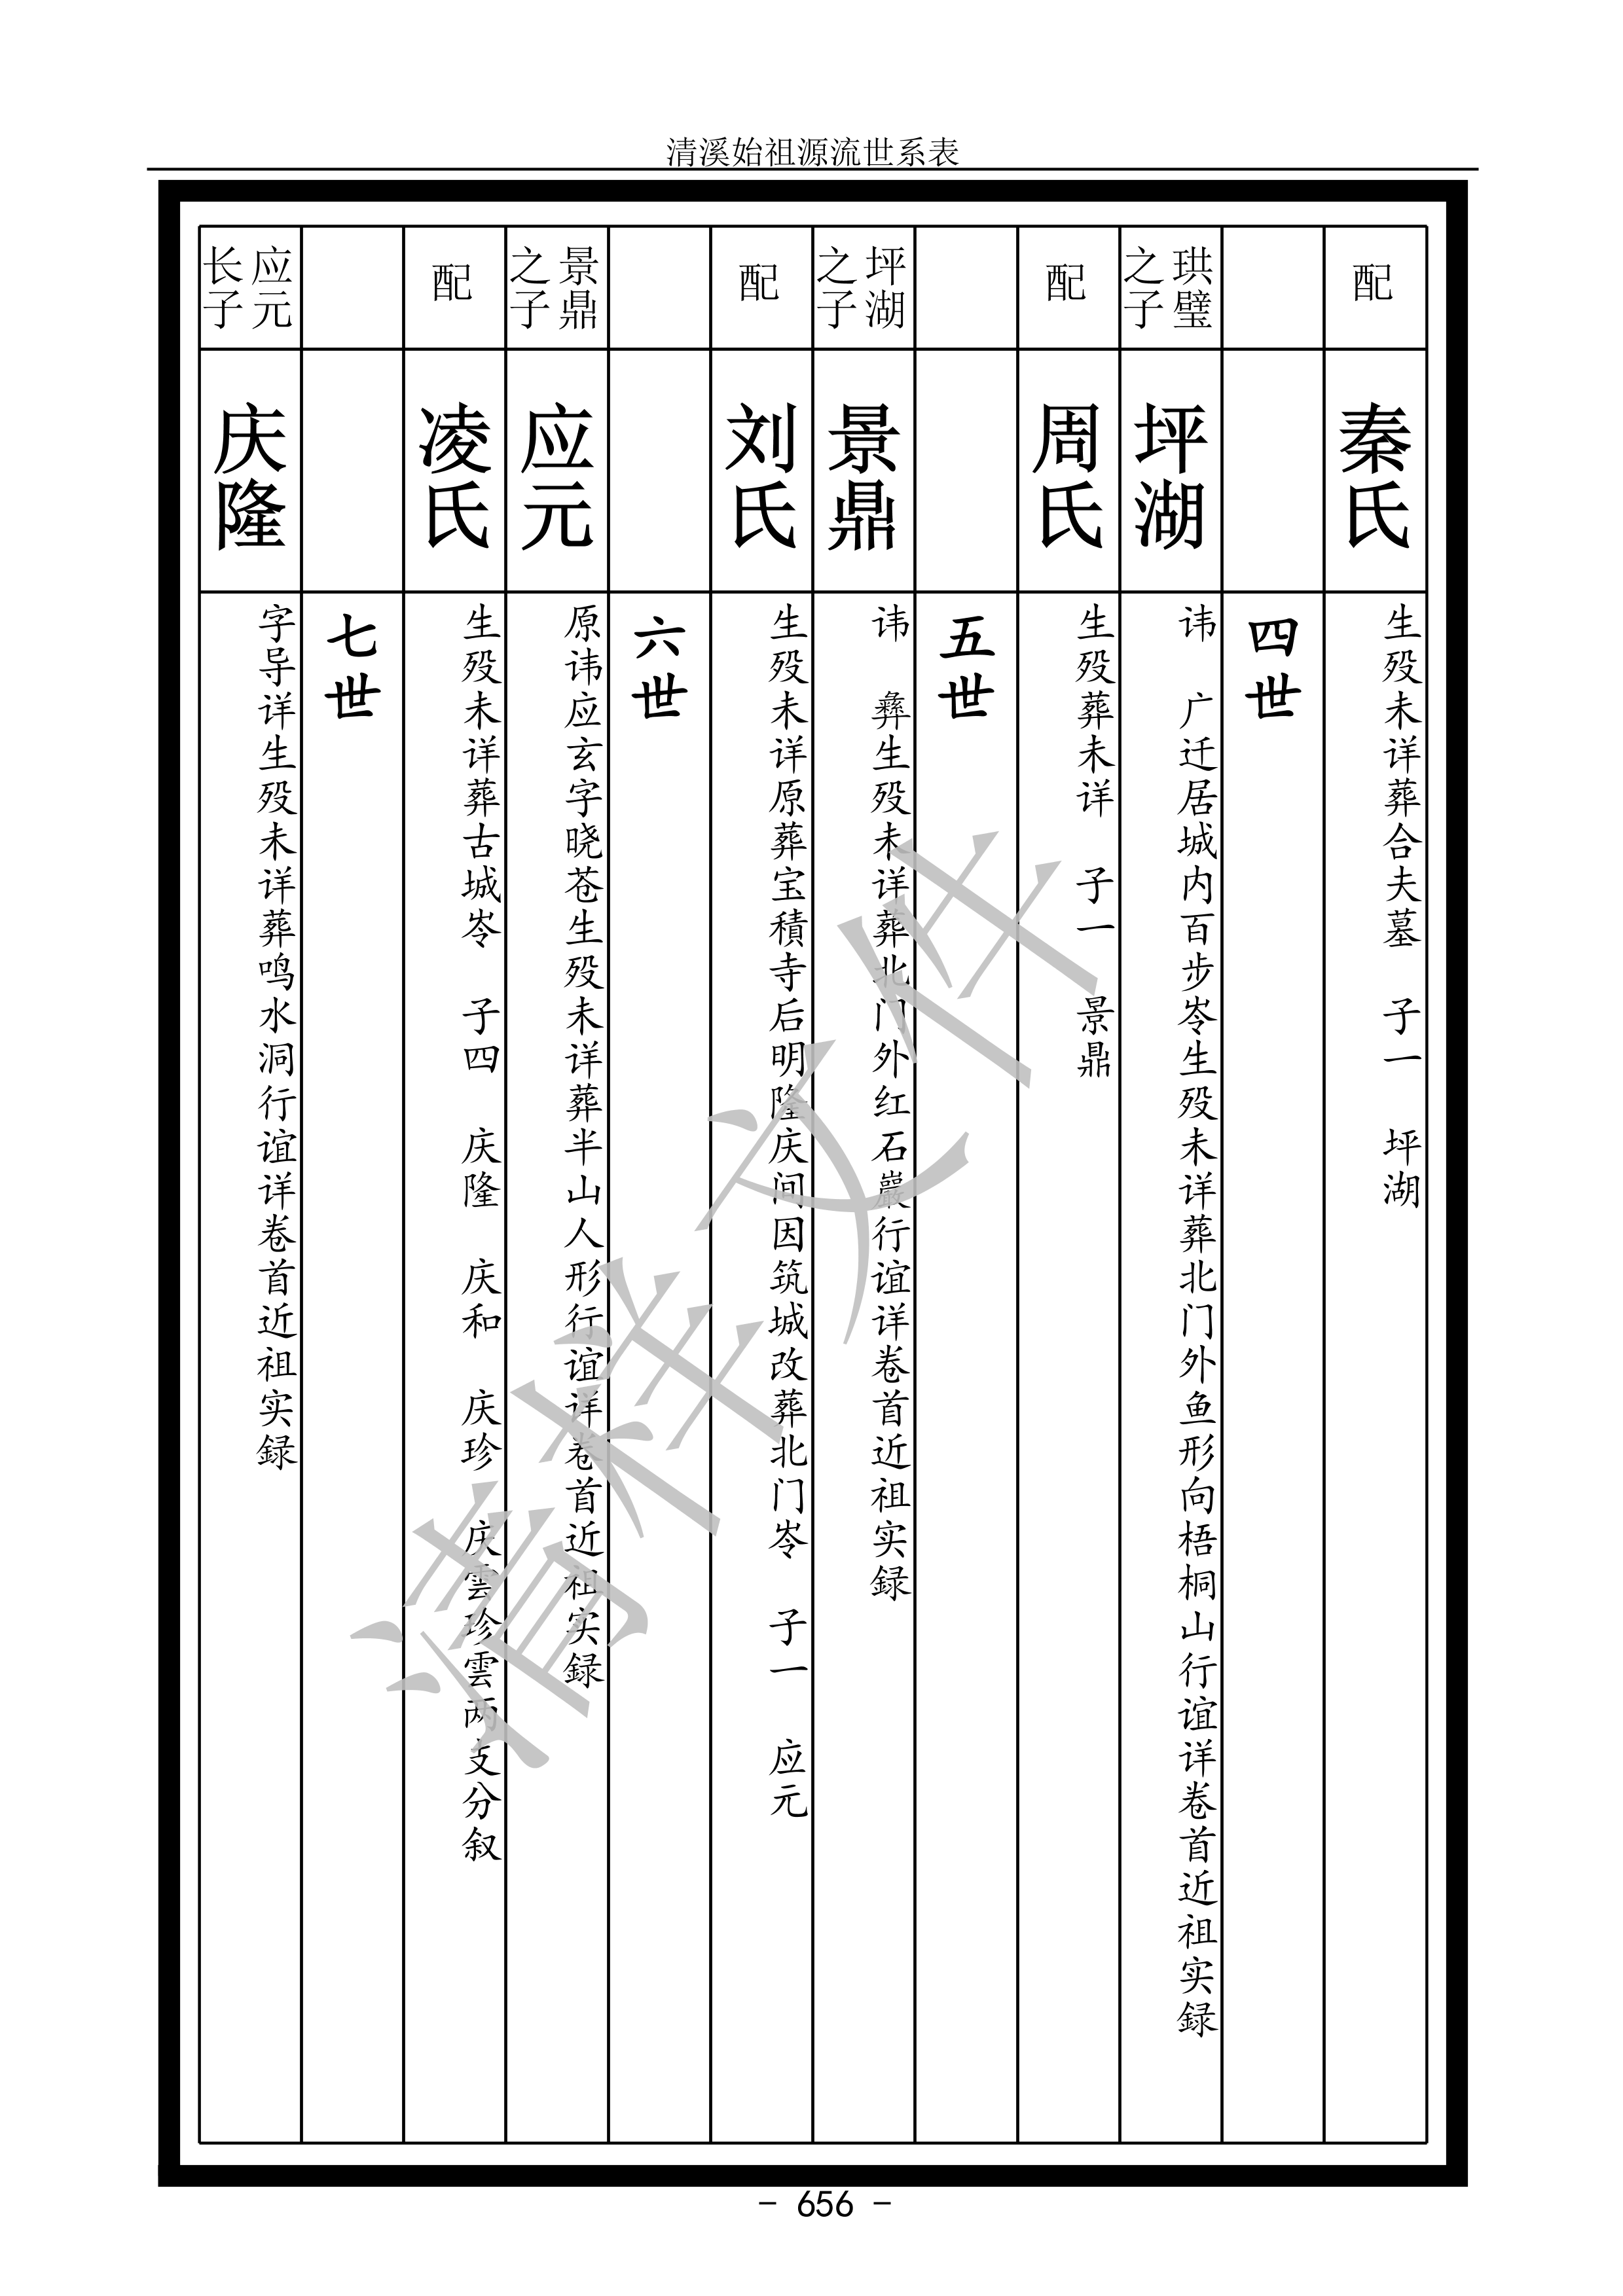 清溪始祖源流世系表
配
秦氏
生殁未详葬合夫墓　子一　坪湖
四世
珙璧
之子
坪湖
讳　广迁居城内百步岺生殁未详葬北门外鱼形向梧桐山行谊详卷首近祖实録
配
周氏
生殁葬未详　子一　景鼎
五世
坪湖
之子
景鼎
讳　彝生殁未详葬北门外红石巖行谊详卷首近祖实録
配
刘氏
生殁未详原葬宝積寺后明隆庆间因筑城改葬北门岺　子一　应元
六世
景鼎
之子
应元
原讳应玄字晓苍生殁未详葬半山人形行谊详卷首近祖实録
配
凌氏
生殁未详葬古城岺　子四　庆隆　庆和　庆珍　庆雲珍雲两支分叙
七世
应元
长子
庆隆
字导详生殁未详葬鸣水洞行谊详卷首近祖实録
清样文件
- 656 -